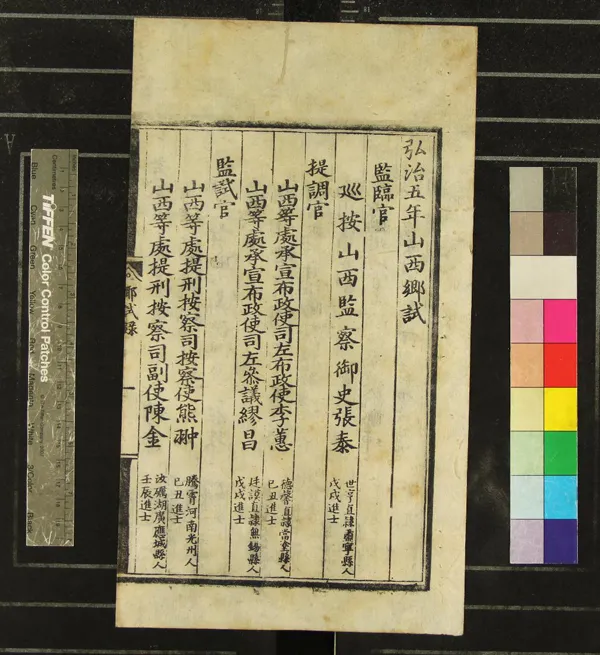 弘治五年山西鄉試
監臨官
廵按山西監察御史張泰
世亨直隸肅寧縣人
戊戌進士
提調官
山西等處承宣布政使司左布政使李蕙
德馨直隸當塗縣人
己丑進士
山西等處承宣布政使司左參議繆昌
廷謨直隸無錫縣人
戊戌進士
監試官
山西等處提刑按察司按察使熊翀
騰霄河南光州人
己丑進士
山西等處提刑按察司副使陳金
汝礪湖廣應城縣人
壬辰進士
鄉試錄
一
TIFFEN Color Control Patches
Blue
Cyan
Green
Yellow
Red
Magenta
White
3/Color
Black